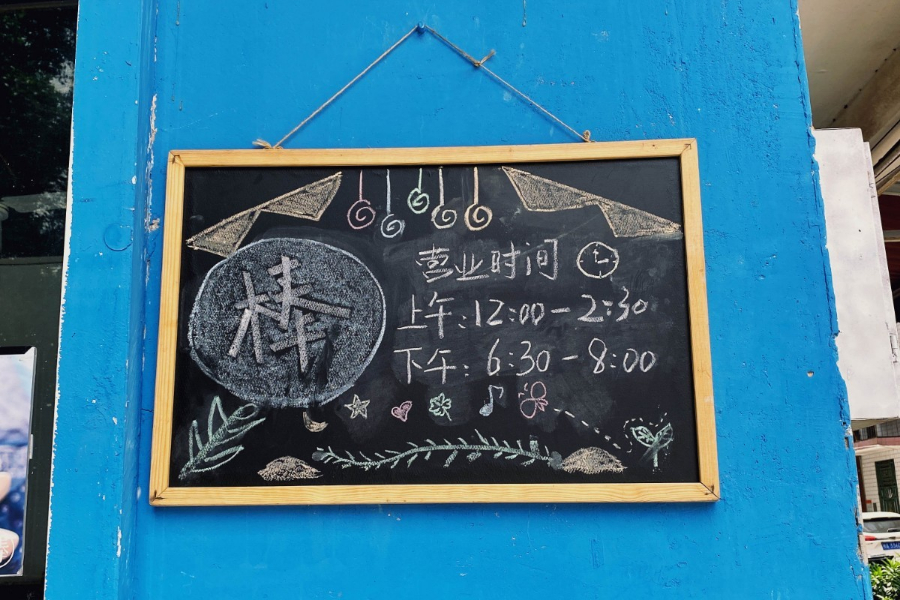 棒
营业时间
上午:12:00-2:30
下午:6:30-8:00